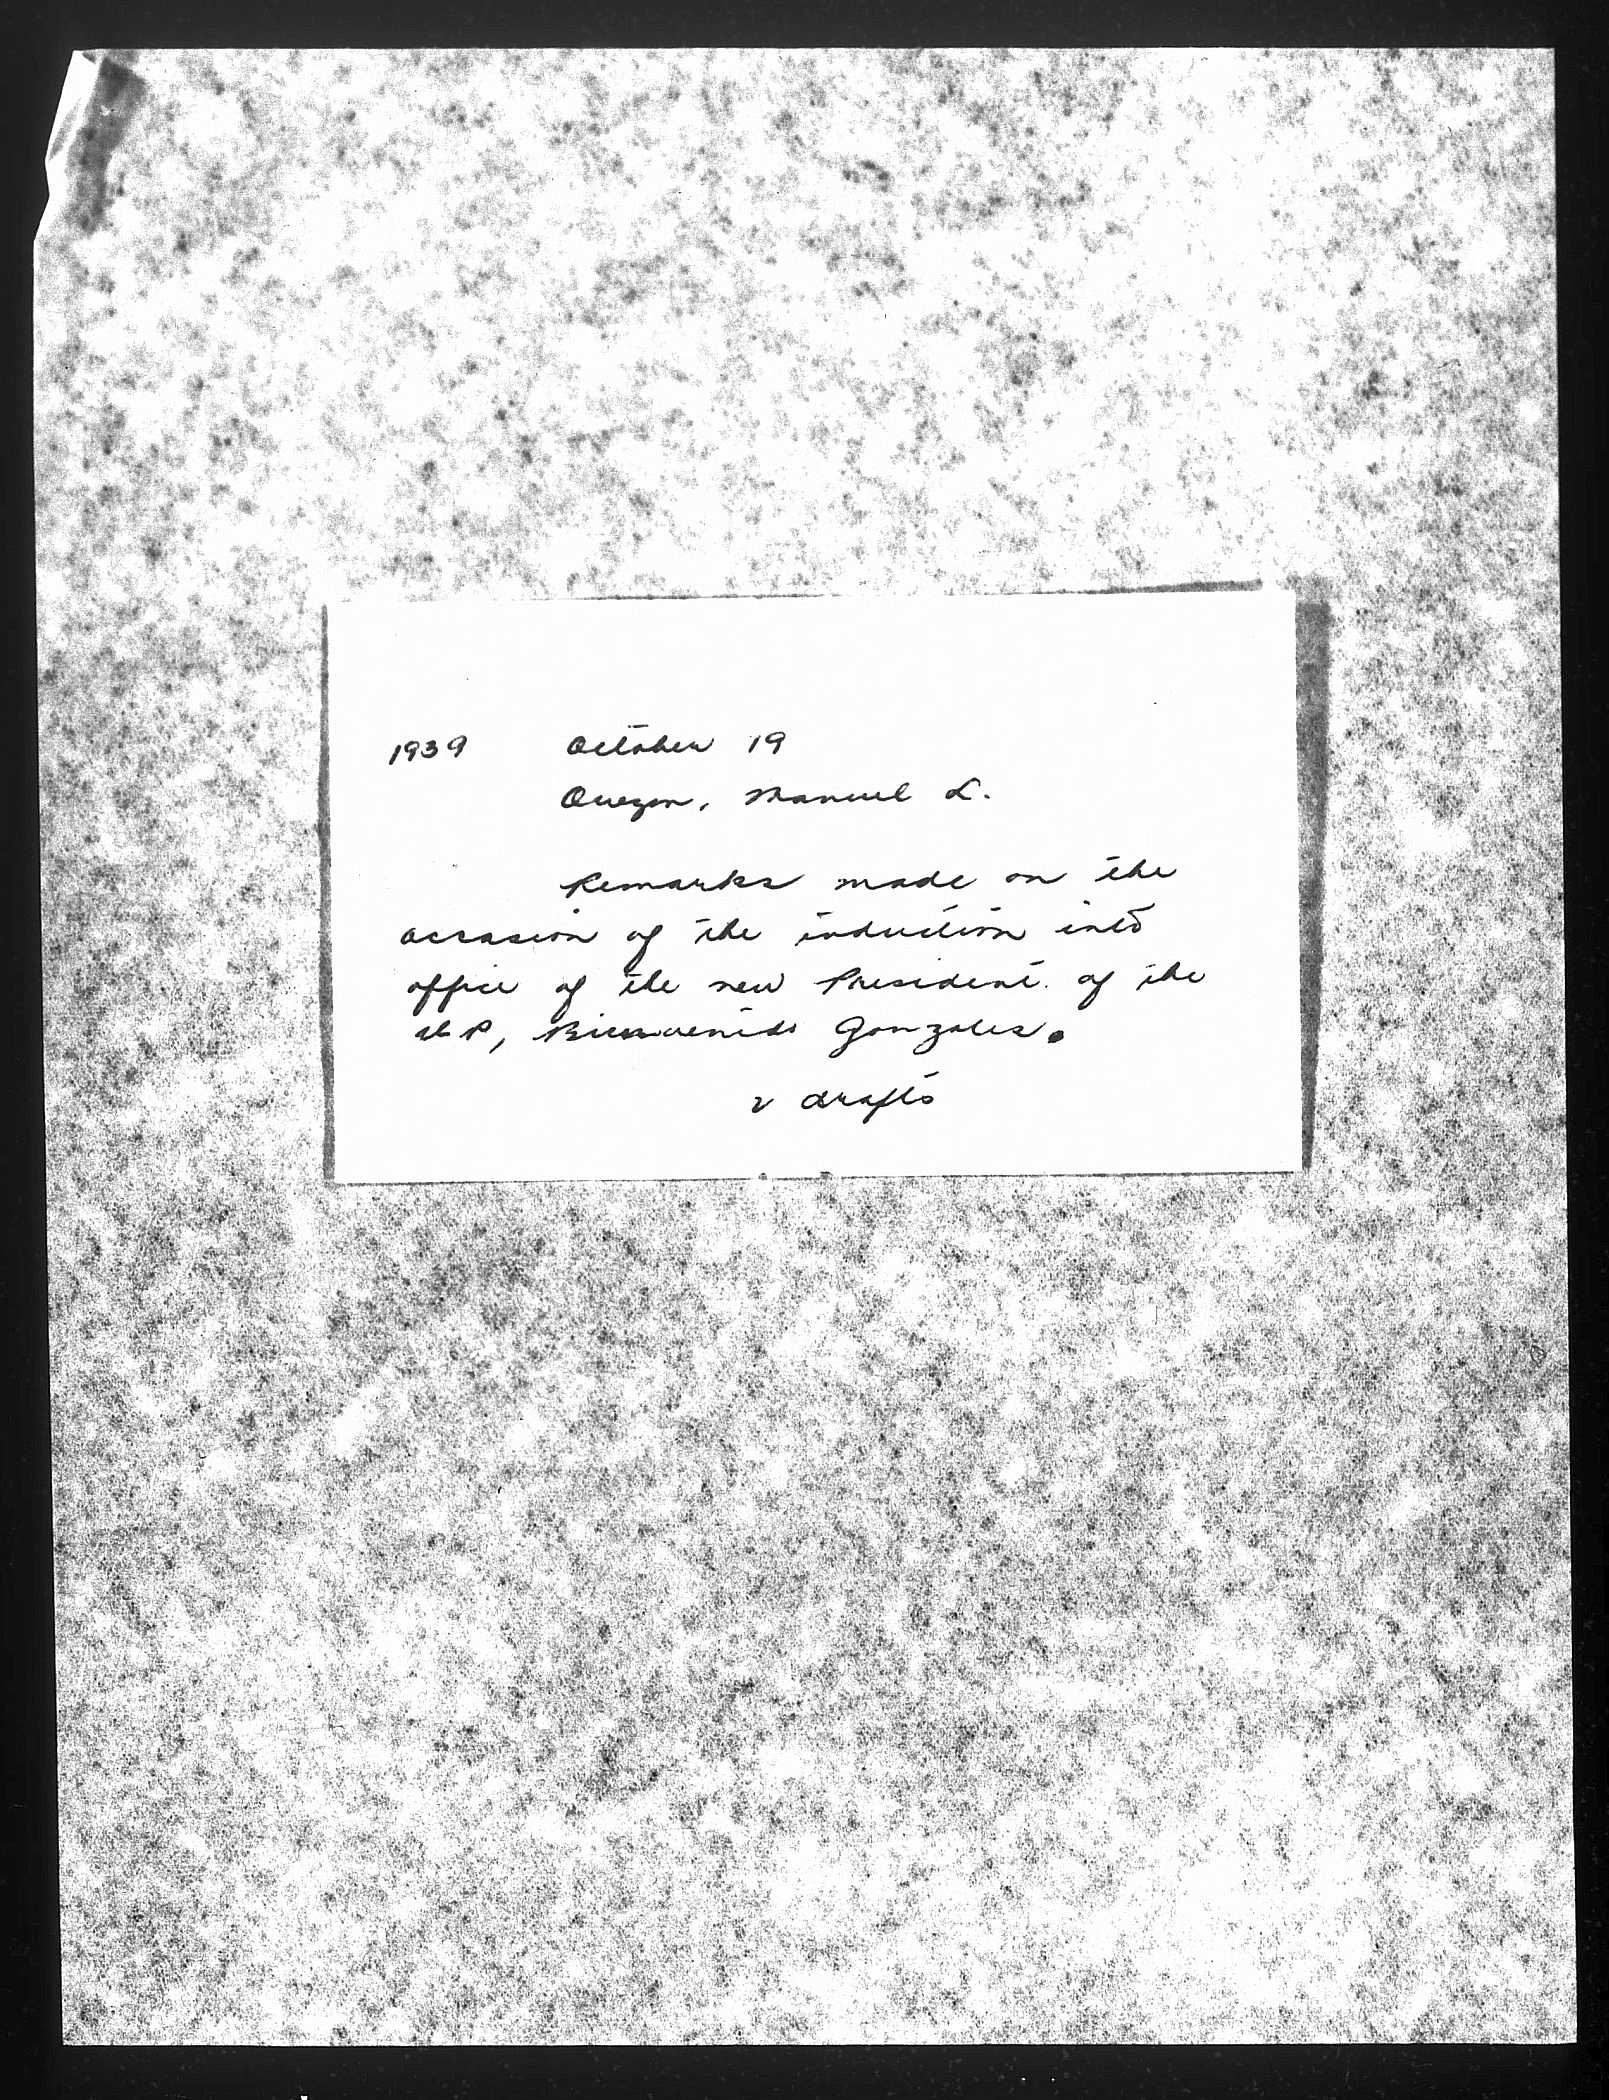 1939 October 19
Quezon, Manuel L.
Remarks made on the
occasion of the induction into
office of the new President of the
UP, Bienvenido Gonzales.
2 drafts